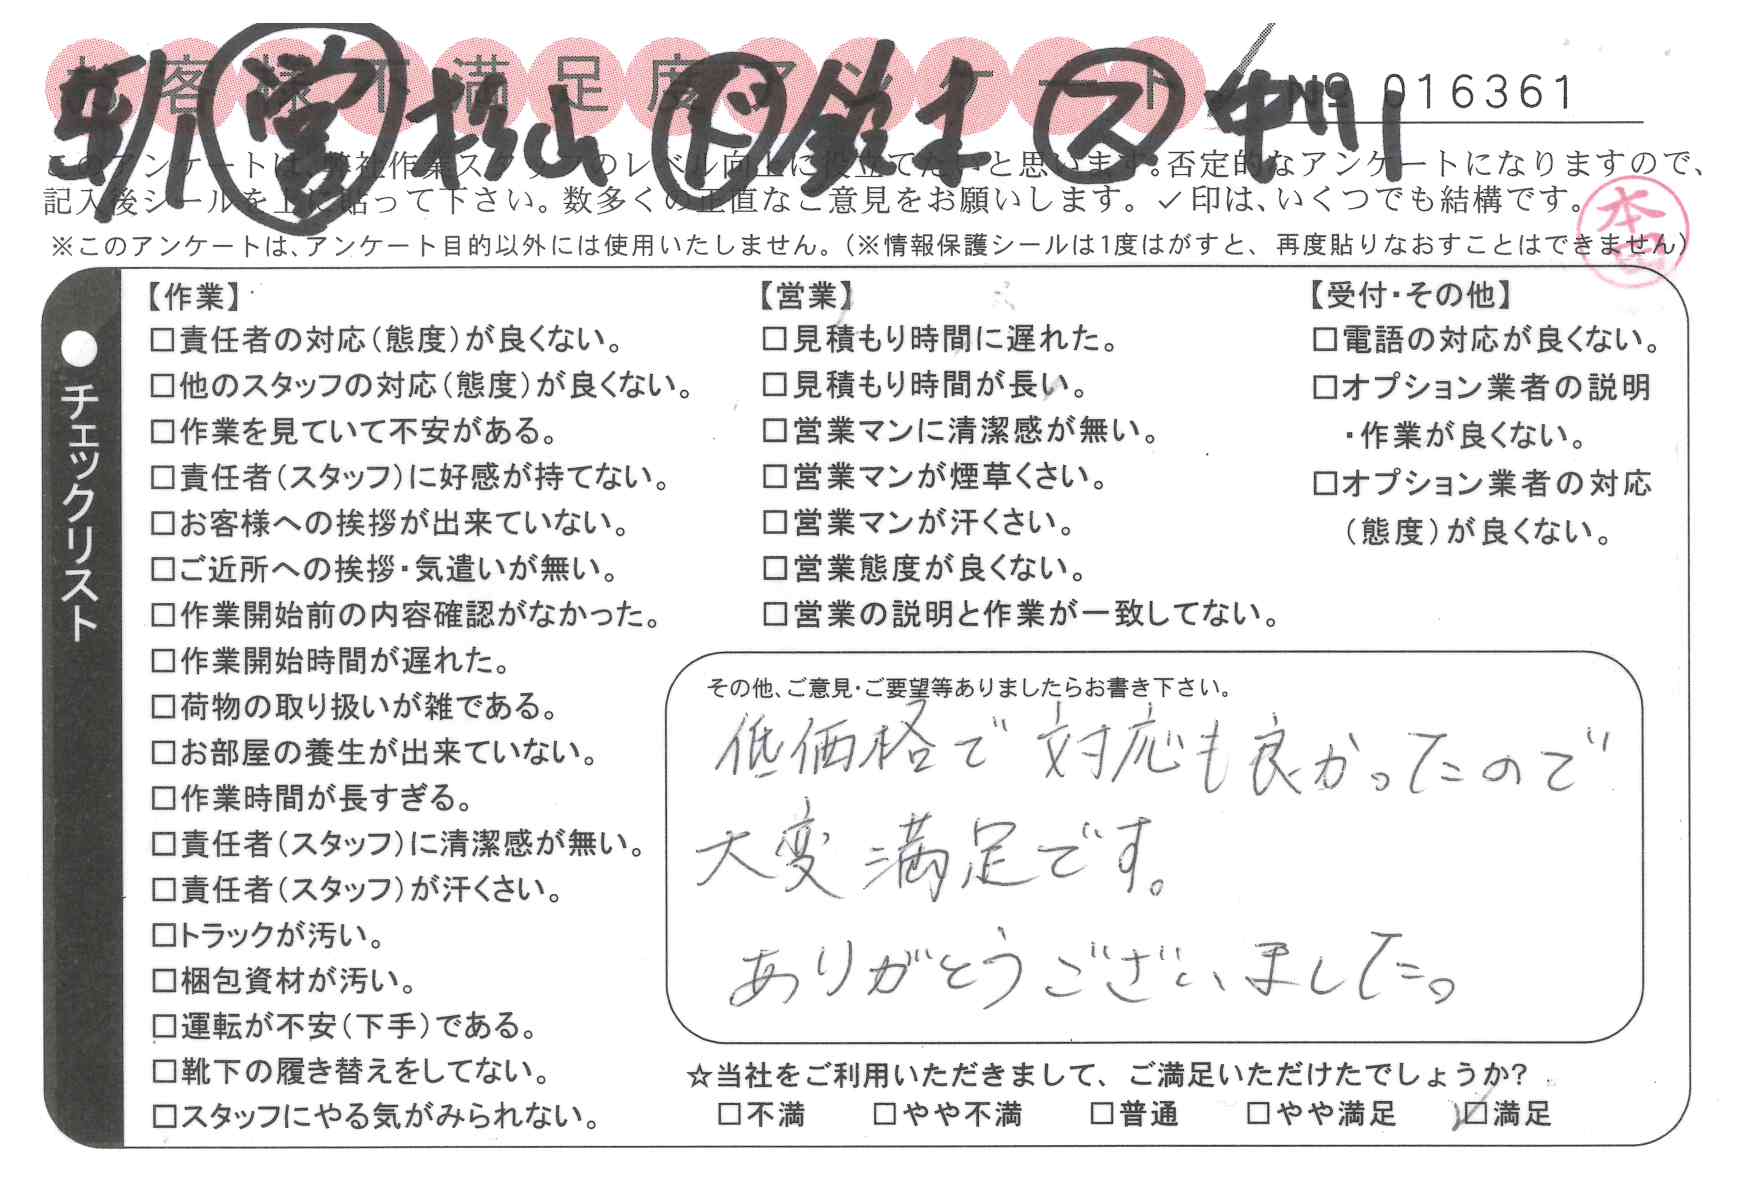 お客様不満足度アンケート
斬 営 杉山 ド 鈴木 ス 中川
№ 016361
このアンケートは、弊社作業スタッフのレベル向上に役立てたいと思います。否定的なアンケートになりますので、
記入後シールを上に貼って下さい。数多くの正直なご意見をお願いします。✓印は、いくつでも結構です。
※このアンケートは、アンケート目的以外には使用いたしません。（※情報保護シールは1度はがすと、再度貼りなおすことはできません）
●チェックリスト
【作業】
□責任者の対応（態度）が良くない。
□他のスタッフの対応（態度）が良くない。
□作業を見ていて不安がある。
□責任者（スタッフ）に好感が持てない。
□お客様への挨拶が出来ていない。
□ご近所への挨拶・気遣いが無い。
□作業開始前の内容確認がなかった。
□作業開始時間が遅れた。
□荷物の取り扱いが雑である。
□お部屋の養生が出来ていない。
□作業時間が長すぎる。
□責任者（スタッフ）に清潔感が無い。
□責任者（スタッフ）が汗くさい。
□トラックが汚い。
□梱包資材が汚い。
□運転が不安（下手）である。
□靴下の履き替えをしてない。
□スタッフにやる気がみられない。
【営業】
□見積もり時間に遅れた。
□見積もり時間が長い。
□営業マンに清潔感が無い。
□営業マンが煙草くさい。
□営業マンが汗くさい。
□営業態度が良くない。
□営業の説明と作業が一致してない。
【受付・その他】
□電話の対応が良くない。
□オプション業者の説明
・作業が良くない。
□オプション業者の対応
（態度）が良くない。
その他、ご意見・ご要望等ありましたらお書き下さい。
低価格で対応も良かったので
大変満足です。
ありがとうございました。
☆当社をご利用いただきまして、ご満足いただけたでしょうか？
□不満 □やや不満 □普通 □やや満足 □満足